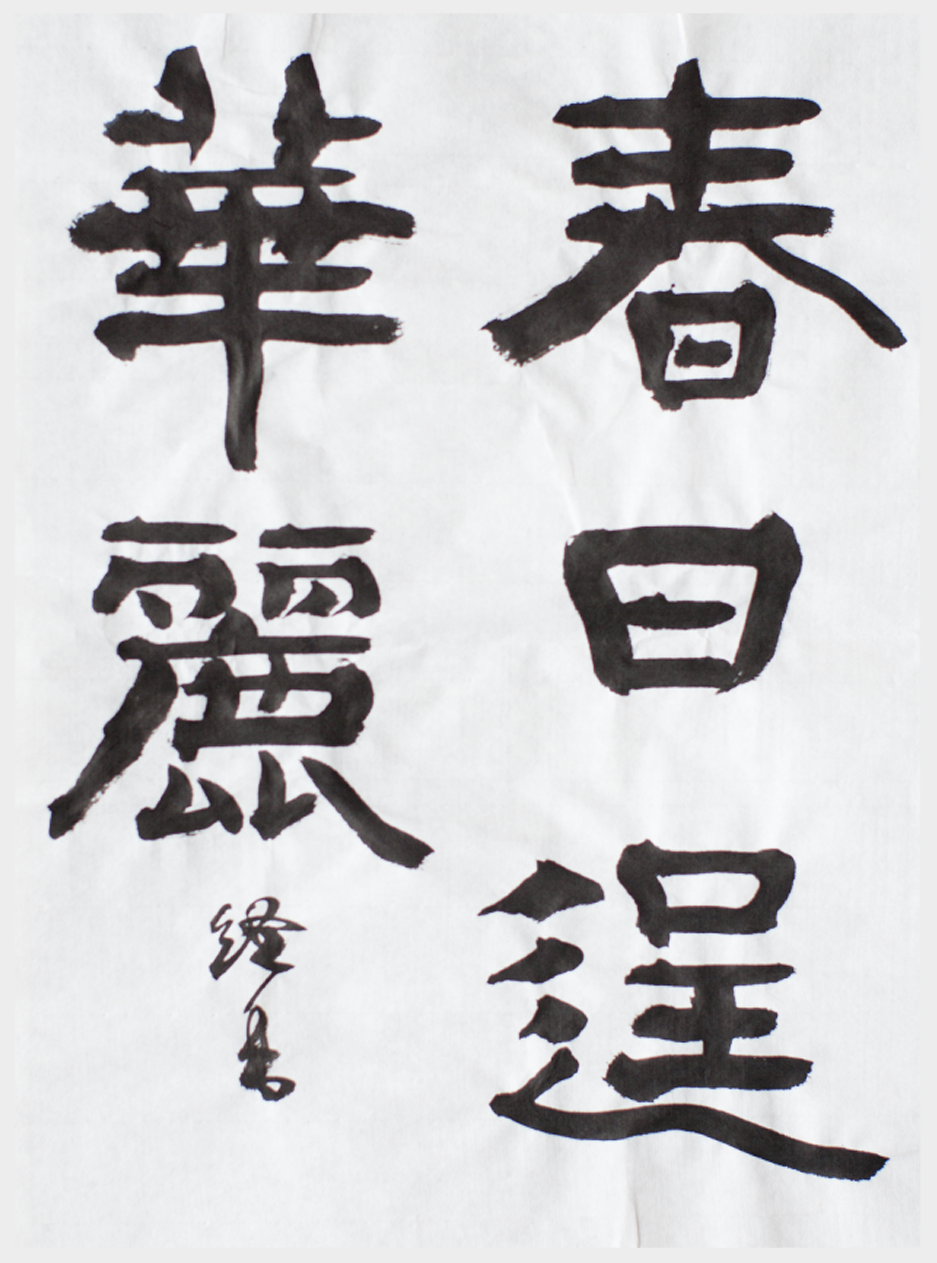 春日逞
華麗
経書